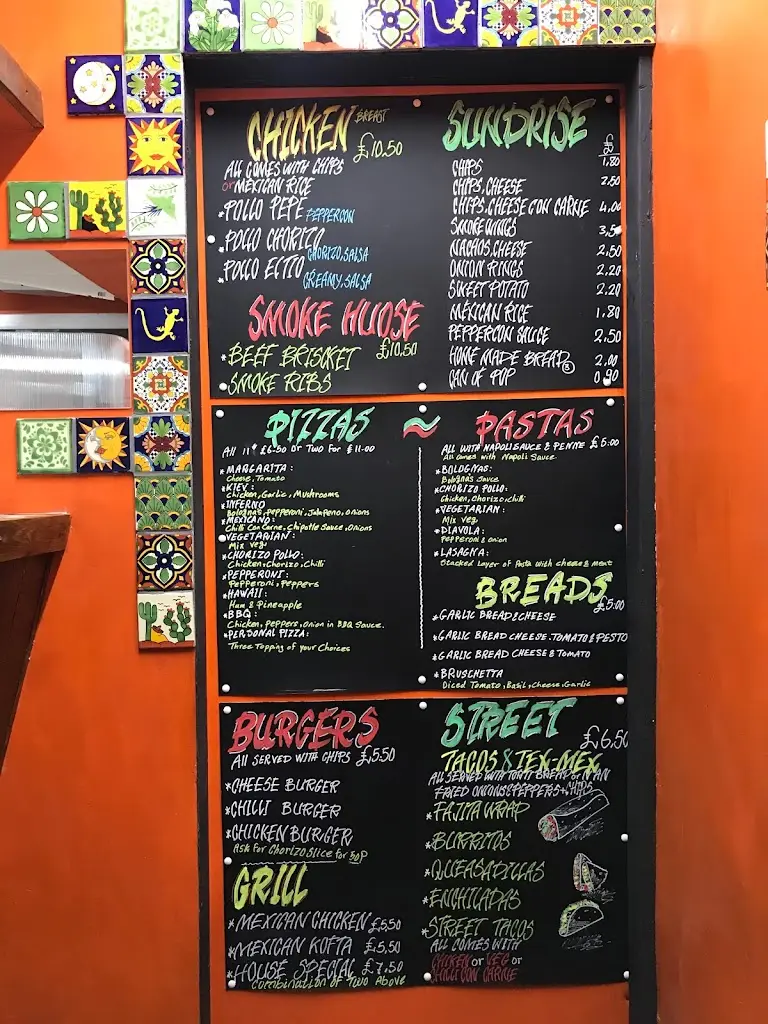 CHICKEN BREAST £10.50
ALL COMES WITH CHIPS
or MEXICAN RICE
*POLLO PEPE PEPPERCON
*POLLO CHORIZO CHORIZO, SALSA
*POLLO ECITO CREAMY, SALSA
SMOKE HUOSE
*BEEF BRISCKET £10.50
*SMOKE RIBS
SUNDRISE
CHIPS 1.80
CHIPS, CHEESE 2.50
CHIPS, CHEESE CON CARNE 4.00
SMOKE WINGS 3.50
NACHOS, CHEESE 2.50
ONION RINGS 2.20
SWEET POTATO 2.20
MEXICAN RICE 1.80
PEPPERCON SAUCE 2.50
HOME MADE BREAD 3 2.00
CAN OF POP 0.90
PIZZAS
All 11" £6.50 or Two For £11.00
*MARGARITA:
Cheese, Tomato
*KIEV:
Chicken, Garlic, Mushrooms
*INFERNO
Bolognas, Pepperoni, Jalapeno, onions
*MEXICANO:
Chilli Con Carne, Chipotle Sauce, Onions
*VEGETARIAN:
Mix Veg
*CHORIZO POLLO:
Chicken, Chorizo, Chilli
*PEPPERONI:
Pepperoni, Peppers
*HAWAII:
Ham & Pineapple
*BBQ:
Chicken, Peppers, Onion in BBQ Sauce.
*PERSONAL PIZZA:
Three Topping of your Choices
PASTAS
ALL WITH NAPOLI SAUCE & PENNE £5.00
All comes with Napoli Sauce
*BOLOGNAS:
Bolognas Sauce
*CHORIZO POLLO:
Chicken, Chorizo, Chilli
*VEGETARIAN:
Mix Veg
*DIAVOLA:
Pepperoni & onion
*LASAGNA:
Stacked Layer of Pasta with cheese & meat
BREADS £5.00
*GARLIC BREAD & CHEESE
*GARLIC BREAD CHEESE, TOMATO & PESTO
*GARLIC BREAD CHEESE & TOMATO
*BRUSCHETTA
Diced Tomato, Basil, Cheese, Garlic
BURGERS
All SERVED WITH CHIPS £5.50
*CHEESE BURGER
*CHILLI BURGER
*CHICKEN BURGER
Ask for Chorizo Slice for 50P
GRILL
*MEXICAN CHICKEN £5.50
*MEXICAN KOFTA £5.50
*HOUSE SPECIAL £7.50
Combination of Two Above
STREET £6.50
TACOS & TEX-MEX
ALL SERVED WITH TORTI BREAD
FRIED ONIONS & PEPPERS + CHIPS
*FAJITA WRAP
*BURRITOS
*QUEASADILLAS
*ENCHILADAS
*STREET TACOS
ALL COMES WITH
CHICKEN or VEG or
CHILLI CON CARNE